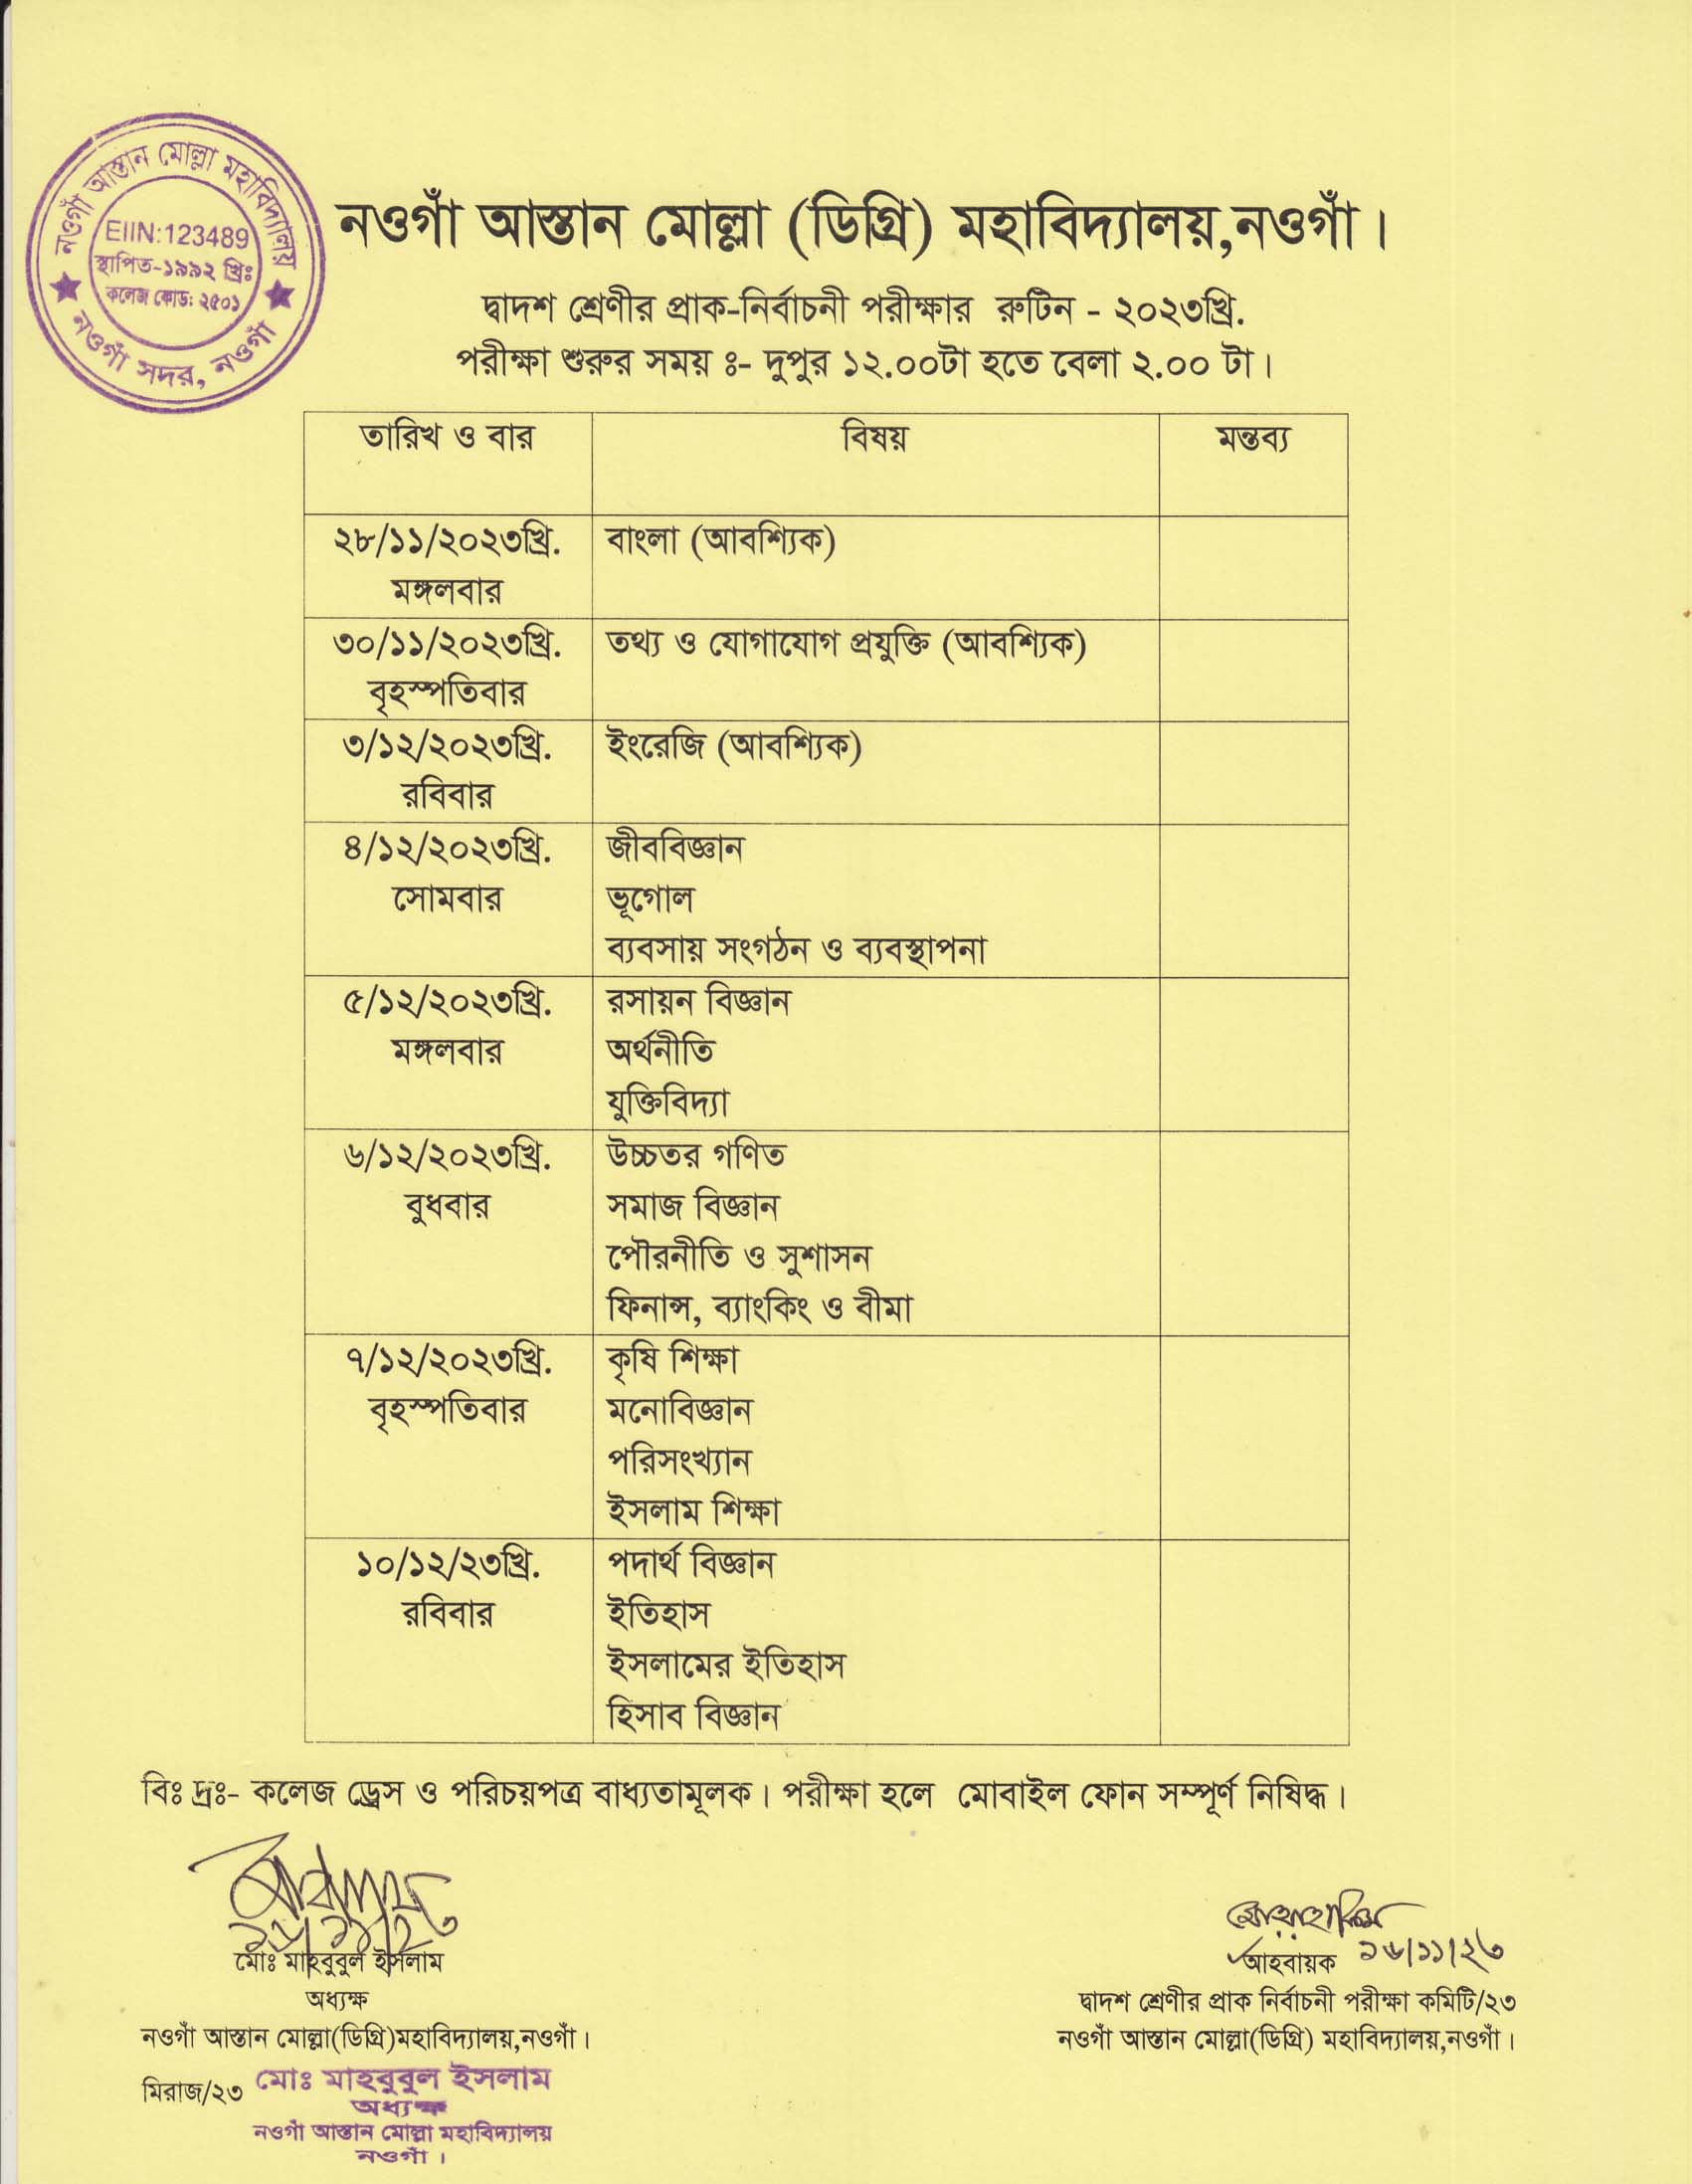 নওগাঁ আস্তান মোল্লা মহাবিদ্যালয়
EIIN:123489
স্থাপিত-১৯৯২ খ্রিঃ
কলেজ কোড: ২৫০১
নওগাঁ সদর, নওগাঁ
নওগাঁ আস্তান মোল্লা (ডিগ্রি) মহাবিদ্যালয়,নওগাঁ।
দ্বাদশ শ্রেণীর প্রাক-নির্বাচনী পরীক্ষার রুটিন - ২০২৩খ্রি.
পরীক্ষা শুরুর সময় ঃ- দুপুর ১২.০০টা হতে বেলা ২.০০ টা।
তারিখ ও বার বিষয় মন্তব্য
২৮/১১/২০২৩খ্রি. বাংলা (আবশ্যিক)
মঙ্গলবার
৩০/১১/২০২৩খ্রি. তথ্য ও যোগাযোগ প্রযুক্তি (আবশ্যিক)
বৃহস্পতিবার
৩/১২/২০২৩খ্রি. ইংরেজি (আবশ্যিক)
রবিবার
৪/১২/২০২৩খ্রি. জীববিজ্ঞান
সোমবার ভূগোল
ব্যবসায় সংগঠন ও ব্যবস্থাপনা
৫/১২/২০২৩খ্রি. রসায়ন বিজ্ঞান
মঙ্গলবার অর্থনীতি
যুক্তিবিদ্যা
৬/১২/২০২৩খ্রি. উচ্চতর গণিত
বুধবার সমাজ বিজ্ঞান
পৌরনীতি ও সুশাসন
ফিনান্স, ব্যাংকিং ও বীমা
৭/১২/২০২৩খ্রি. কৃষি শিক্ষা
বৃহস্পতিবার মনোবিজ্ঞান
পরিসংখ্যান
ইসলাম শিক্ষা
১০/১২/২৩খ্রি. পদার্থ বিজ্ঞান
রবিবার ইতিহাস
ইসলামের ইতিহাস
হিসাব বিজ্ঞান
বিঃ দ্রঃ- কলেজ ড্রেস ও পরিচয়পত্র বাধ্যতামূলক। পরীক্ষা হলে মোবাইল ফোন সম্পূর্ণ নিষিদ্ধ।
১৬/১১/২৩
মোঃ মাহবুবুল ইসলাম
অধ্যক্ষ
নওগাঁ আস্তান মোল্লা(ডিগ্রি)মহাবিদ্যালয়,নওগাঁ।
মিরাজ/২৩
মোঃ মাহবুবুল ইসলাম
অধ্যক্ষ
নওগাঁ আস্তান মোল্লা মহাবিদ্যালয়
নওগাঁ।
আহবায়ক ১৬/১১/২৩
দ্বাদশ শ্রেণীর প্রাক নির্বাচনী পরীক্ষা কমিটি/২৩
নওগাঁ আস্তান মোল্লা(ডিগ্রি) মহাবিদ্যালয়,নওগাঁ।